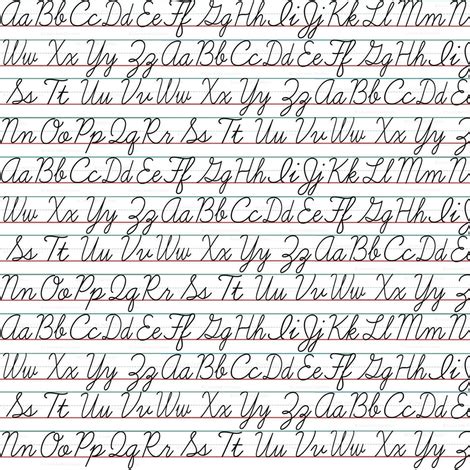 Aa Bb Cc Dd Ee Ff Gg Hh Ii Jj Kk Ll Mm Nn
Ww Xx Yy Zz Aa Bb Cc Dd Ee Ff Gg Hh Ii
Ss Tt Uu Vv Ww Xx Yy Zz Aa Bb Cc Dd Ee
Nn Oo Pp Qq Rr Ss Tt Uu Vv Ww Xx Yy Zz
Aa Bb Cc Dd Ee Ff Gg Hh Ii Jj Kk Ll Mm Nn
Ww Xx Yy Zz Aa Bb Cc Dd Ee Ff Gg Hh Ii
Ss Tt Uu Vv Ww Xx Yy Zz Aa Bb Cc Dd Ee
Nn Oo Pp Qq Rr Ss Tt Uu Vv Ww Xx Yy Zz
Aa Bb Cc Dd Ee Ff Gg Hh Ii Jj Kk Ll Mm Nn
Ww Xx Yy Zz Aa Bb Cc Dd Ee Ff Gg Hh Ii
Ss Tt Uu Vv Ww Xx Yy Zz Aa Bb Cc Dd Ee
Nn Oo Pp Qq Rr Ss Tt Uu Vv Ww Xx Yy Zz